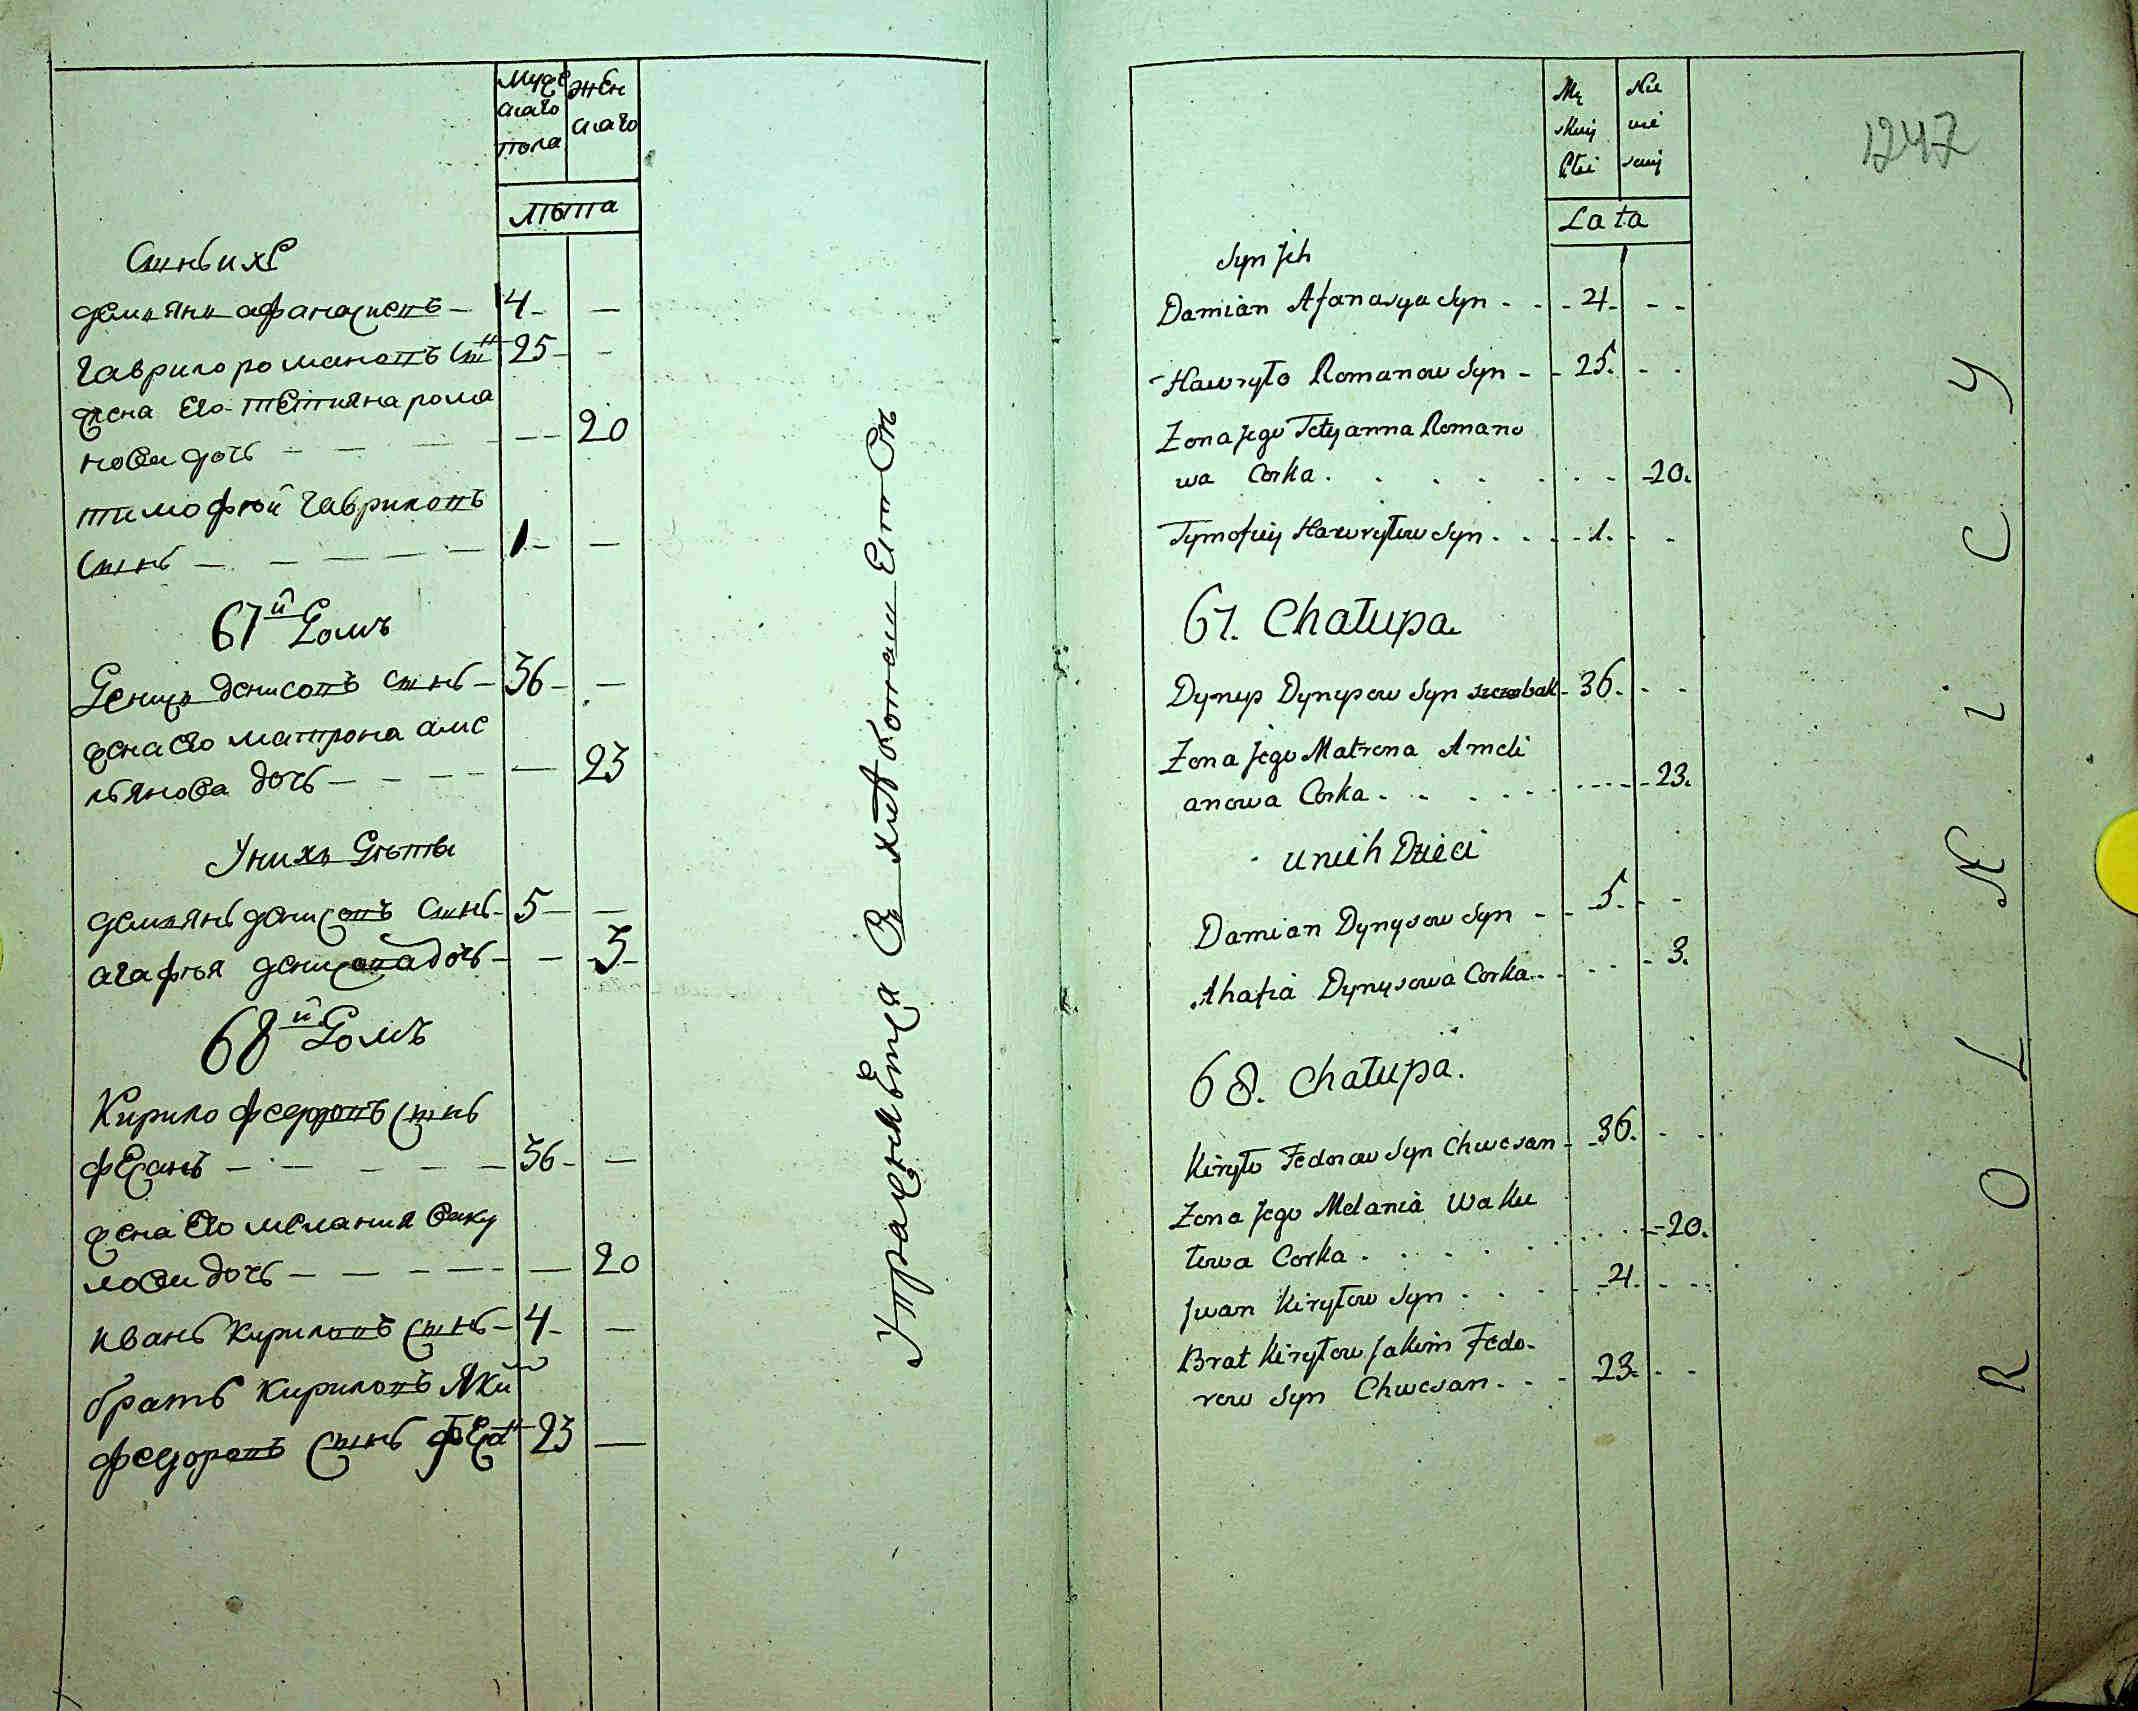 Мужескаго пола
Женскаго
Лѣта
Синъ ихъ
Демьянъ афанасиевъ — 4 — —
Гаврило романовъ синъ 25 — —
жена Его Тетияна рома
нова дочь — — — — 20
тимофѣй Гавриловъ
Синъ — — — — 1 — —
67й Домъ
Денисъ денисовъ синъ — 36 — —
жена его матрона аме
льянова дочь — — — — 23
У нихъ Дѣты
демьянъ денисовъ синъ — 5 — —
агафья денисова дочь — — — 3 —
68й Домъ
Кирило федоровъ синъ
— — — — — 36 — —
жена Его мелания ваку
лова дочь — — — — — 20
иванъ кириловъ синъ — 4 — —
братъ кириловъ Яким
федоровъ синъ 23 —
Упражняется В хлѣбопашЕствѣ
1247
Męskiej Płci
Niewieściej
Lata
Syn Ich
Damian Afanasya Syn - - - 4. - -
Hawryło Romanow Syn - - 25. - -
Zona Jego Tetyanna Romano
wa Corka . . . . . . . - 20.
Tymofiey Hawryłow Syn . . . - 1. - -
67. Chałupa.
Dynys Dynysow Syn Szczerbak - 36. - -
Zona Jego Matrona Ameli
anowa Corka . . . . . - - - - 23.
u nich Dzieci
Damian Dynysow Syn - - 5. - -
Ahafia Dynysowa Corka . . . . . - 3.
68. Chałupa.
Kiryło Fedorow Syn Chwesan - - 36. - -
Zona Jego Melania Waku
łowa Corka . . . . . . . . - - 20.
Jwan Kiryłow Syn . . . - - 4. - - -
Brat Kiryłow Jakim Fedo-
row Syn Chwesan . . . - 23. - -
ROLNICY